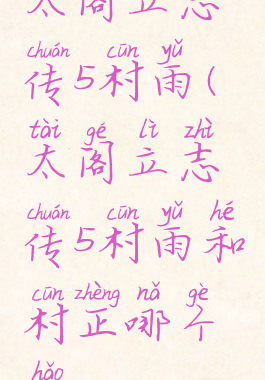 太阁立志
chuán cūn yǔ
传5村雨(
tài gé lì zhì
太阁立志
chuán cūn yǔ hé
传5村雨和
cūn zhèng nǎ gè
村正哪个
hǎo